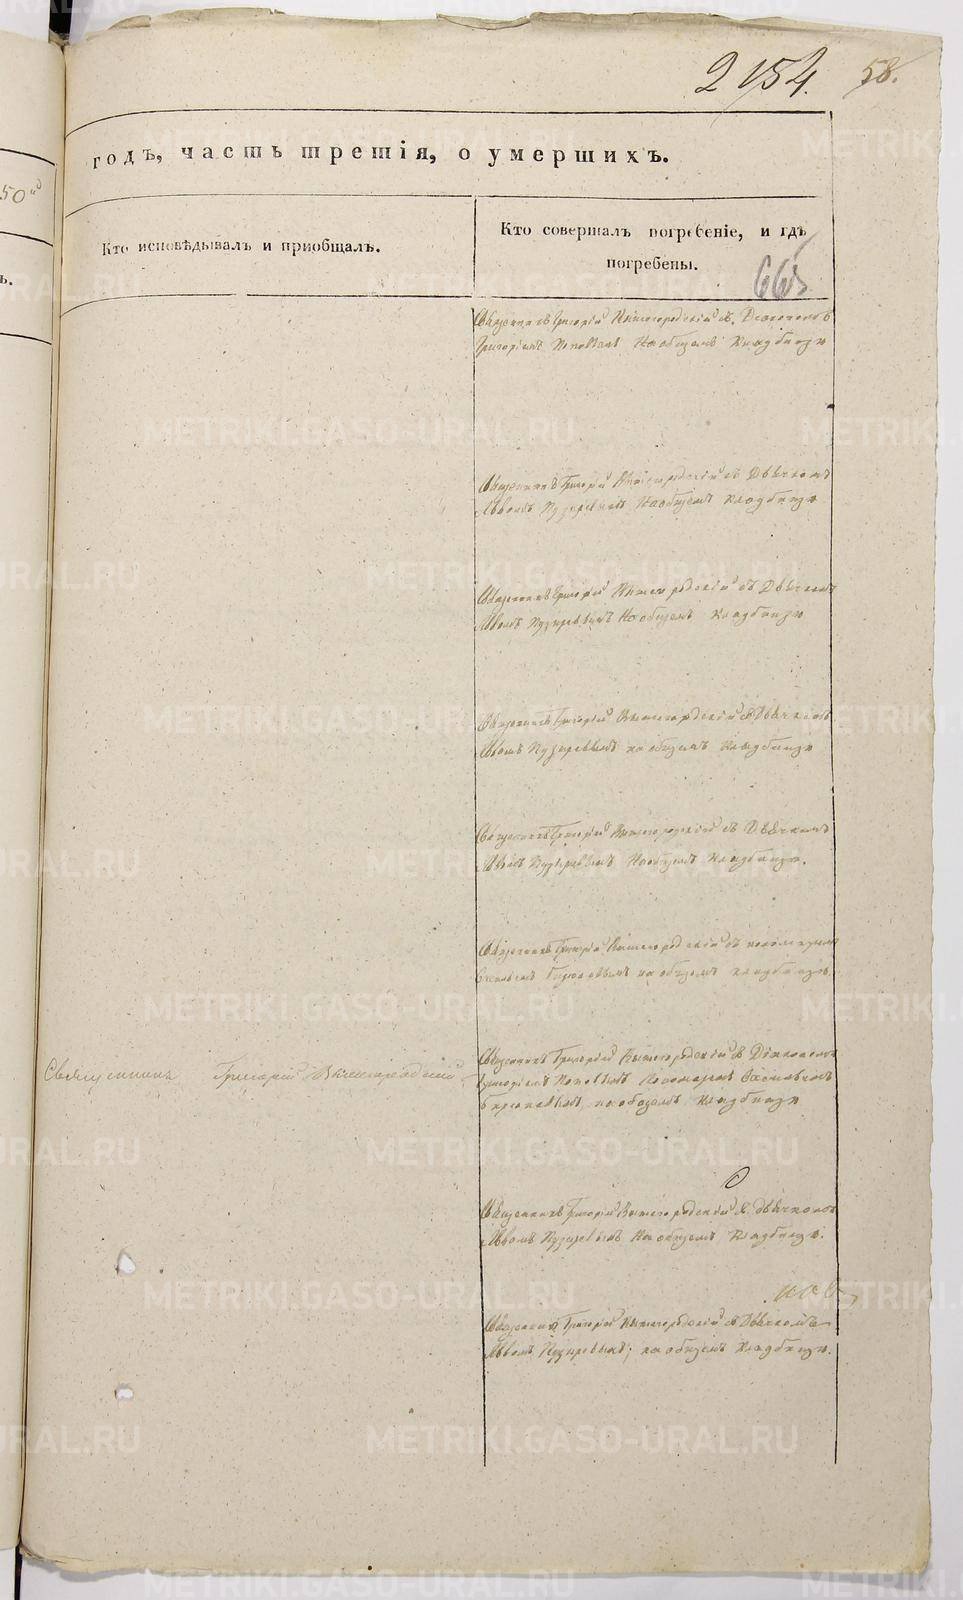 2154. 58.
годъ, часть третія, о умершихъ.
50го
Кто исповѣдывалъ и приобщалъ.
Кто совершалъ погребеніе, и гдѣ
погребены.
665
Священникъ Григорій Вышегородскій съ Діакономъ
Григоріемъ Поповымъ На общемъ Кладбищѣ
Священникъ Григорій Вышегородскій съ Дьячкомъ
Львомъ Пузыревымъ На общемъ кладбищѣ
Священникъ Григорій Вышегородскій съ Дьячкомъ
Львомъ Пузыревымъ На общемъ Кладбищѣ
Священникъ Григорій Вышегородскій съ Дьячкомъ
Львомъ Пузыревымъ на общемъ Кладбищѣ
Священникъ Григорій Вышегородскій съ Дьячкомъ
Львомъ Пузыревымъ На общемъ Кладбищѣ.
Священникъ Григорій Вышегородскій съ пономаремъ
на общемъ кладбищѣ.
Священникъ Григорій Вышегородскій
Священникъ Григорій Вышегородскій съ Діакономъ
Григоріемъ Поповымъ Пономаремъ
на общемъ Кладбищѣ
Священникъ Григорій Вышегородскій съ дьячкомъ
Львомъ Пузыревымъ На общемъ Кладбищѣ.
Священникъ Григорій Вышегородскій съ Дьячкомъ
Львомъ Пузыревымъ; на общемъ Кладбищѣ.
METRIKI.GASO-URAL.RU